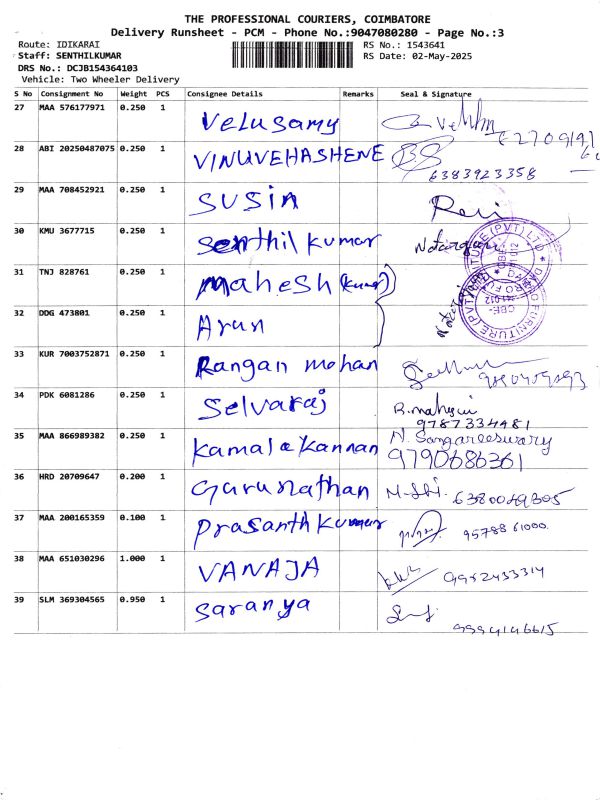 THE PROFESSIONAL COURIERS, COIMBATORE
Delivery Runsheet - PCM - Phone No.:9047080280 - Page No.:3
Route: IDIKARAI RS No.: 1543641
Staff: SENTHILKUMAR RS Date: 02-May-2025
DRS No.: DCJB154364103
Vehicle: Two Wheeler Delivery
S No Consignment No Weight PCS Consignee Details Remarks Seal & Signature
27 MAA 576177971 0.250 1 Velusamy
28 ABI 20250487075 0.250 1 VINUVEHASHENE 6383923358
29 MAA 708452921 0.250 1 SUSin Ravi
30 KMU 3677715 0.250 1 Senthil kumar
31 TNJ 828761 0.250 1 Mahesh (kumar)
32 DDG 473801 0.250 1 Arun
33 KUR 7003752871 0.250 1 Rangan mohan
34 PDK 6081286 0.250 1 Selvaraj
9787334481
35 MAA 866989382 0.250 1 Kamalakannan N. Sangareeswary
9790686361
36 HRD 20709647 0.200 1 Gurunathan 6380049805
37 MAA 200165359 0.100 1 Prasanth kumar 95788 61000.
38 MAA 651030296 1.000 1 VANAJA 9952433314
39 SLM 369304565 0.950 1 Saranya
9994146615